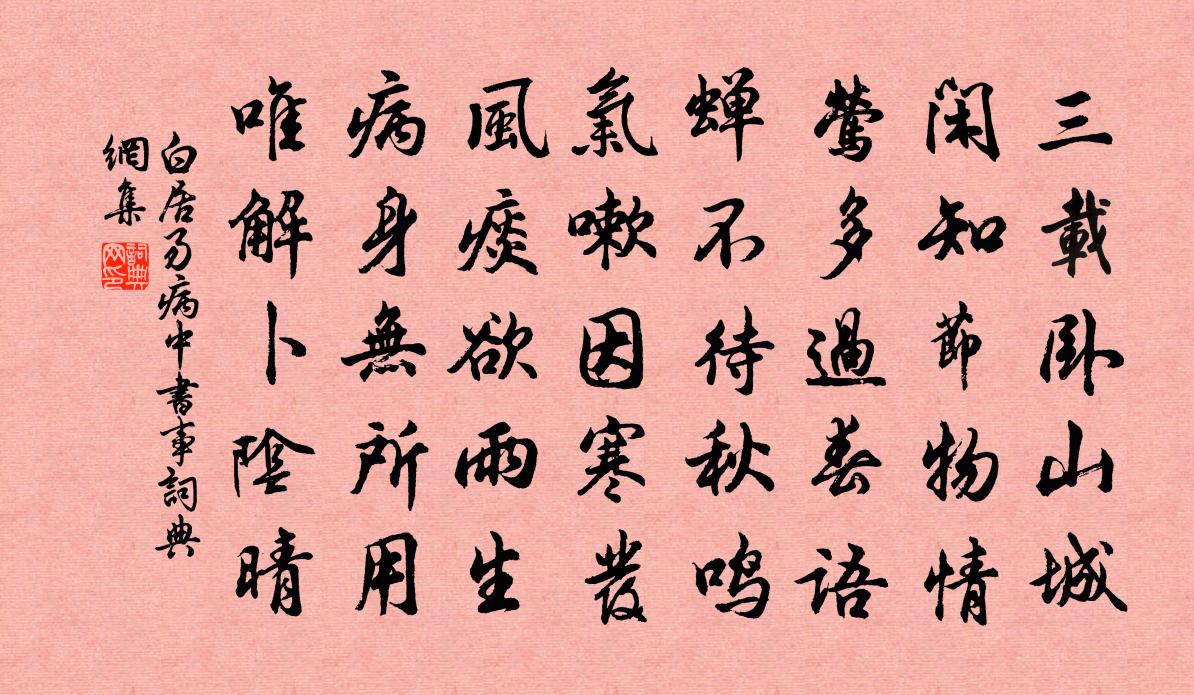 三載臥山城
閑知節物情
鶯多過春語
蟬不待秋鳴
氣嗽因寒發
風痰欲雨生
病身無所用
唯解卜陰晴
白居易病中書事詞典
網集
詞典
网印